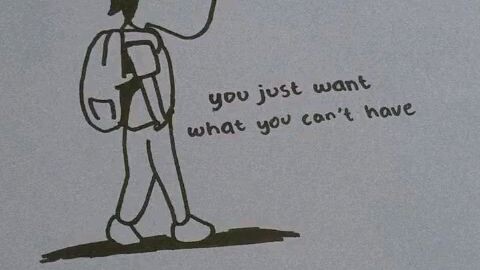 you just want
what you can't have